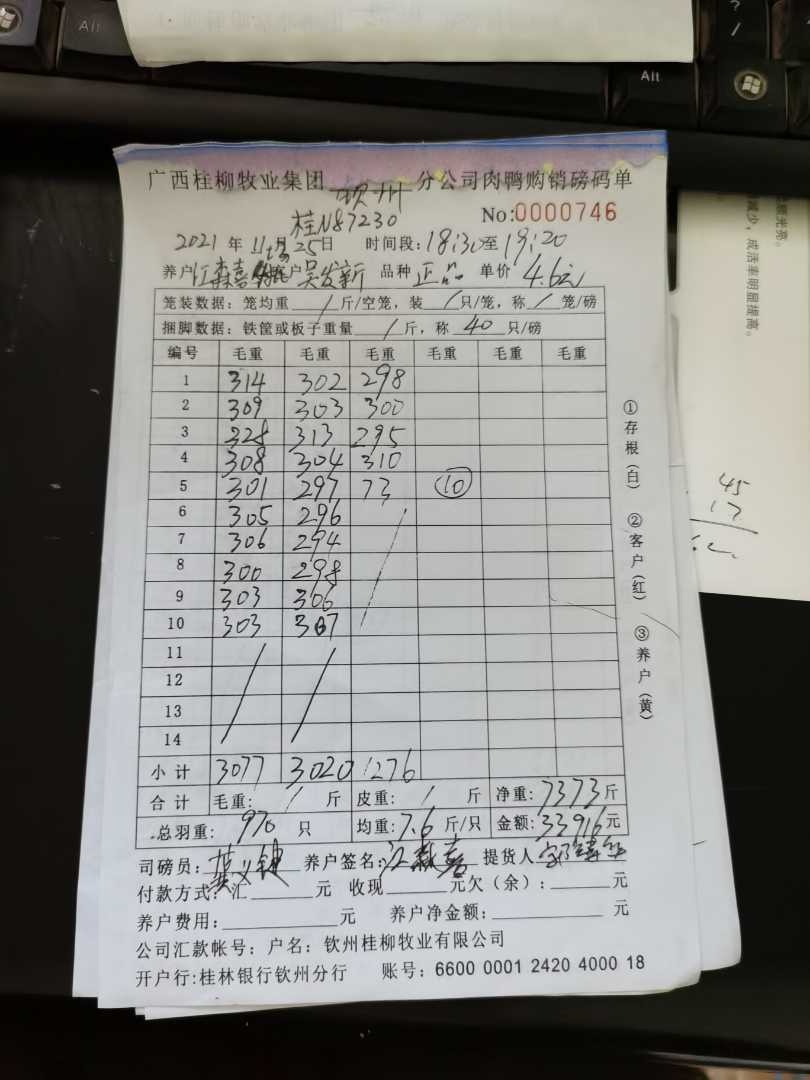 Alt
Alt
?
/
广西桂柳牧业集团 钦州 分公司肉鸭购销磅码单
桂N87230 No:0000746
2021年11月25日 时间段:18:30至19:20
养户 江森喜 客户 吴发新 品种 正品 单价 4.6元
笼装数据:笼均重 / 斤/空笼,装 / 只/笼,称 / 笼/磅
捆脚数据:铁筐或板子重量 / 斤,称 40 只/磅
编号 毛重 毛重 毛重 毛重 毛重 毛重
1 314 302 298
2 309 303 300
3 328 313 295
4 308 304 310
5 301 297 73 10
6 305 296
7 306 294
8 300 298
9 303 306
10 303 307
11
12
13
14
小计 3077 3020 1276
合计 毛重: / 斤 皮重: / 斤 净重:7373斤
总羽重: 970 只 均重:7.6斤/只 金额:33916元
司磅员: 养户签名: 提货人
付款方式:汇 元 收现 元欠(余): 元
养户费用: 元 养户净金额: 元
公司汇款帐号:户名:钦州桂柳牧业有限公司
开户行:桂林银行钦州分行 账号:6600 0001 2420 4000 18
①存根(白) ②客户(红) ③养户(黄)
光亮。
减少,成活率明显提高。
45
17